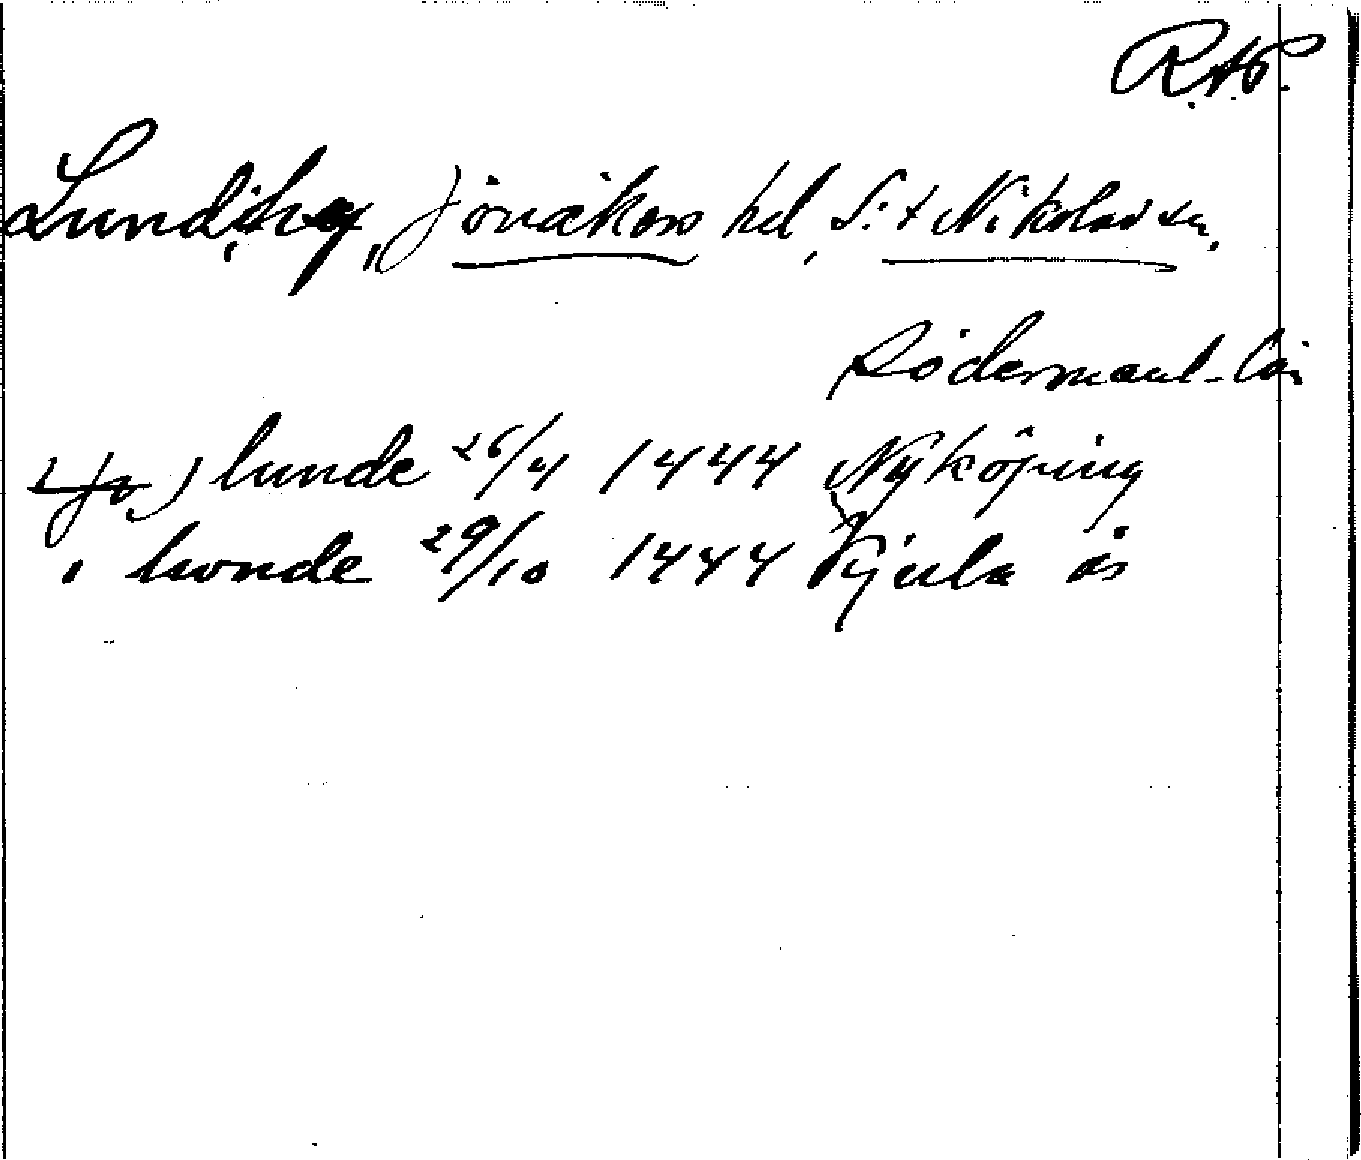 R.A.P.
Lundby, Jönåkers hd, S:t Nikolai sn,
Södermanl. län
i lunde 26/4 1444 Nyköping
i lwnde 29/10 1444 Kjula ås